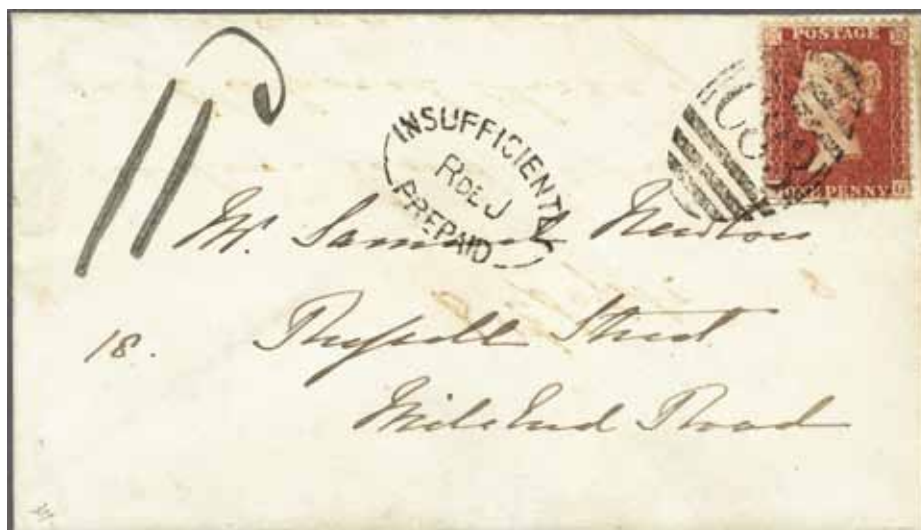 POSTAGE
ONE PENNY
INSUFFICIENTLY
R DE J
PREPAID
Mr. Samuel Newton
18. Russell Street
Mile End Road